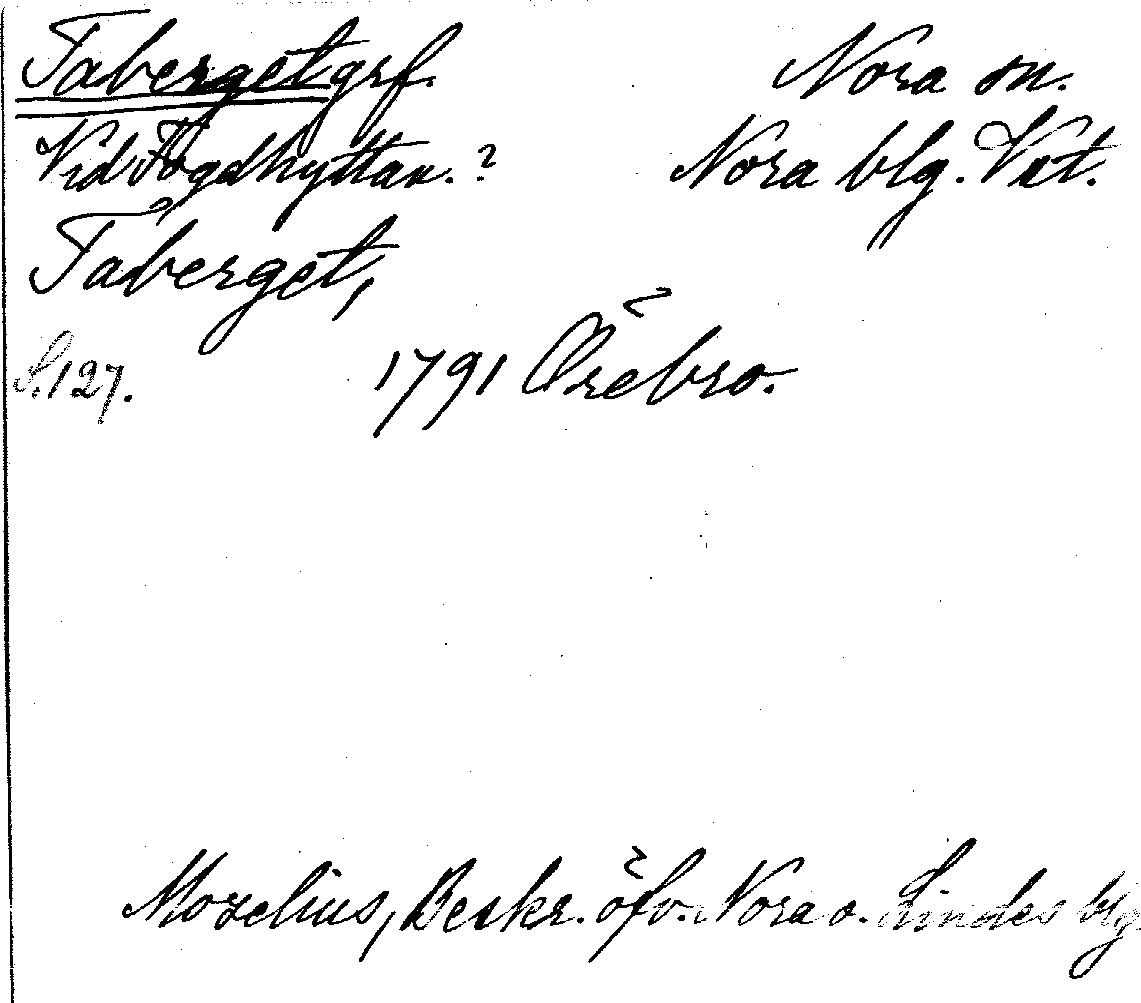 Taberget grf. Nora sn.
Vid Fogdhyttan.? Nora blg. Vst.
Tåberget,
S. 127. 1791 Örebro.
Mozelius, Beskr. öfv. Nora o. Lindes blg